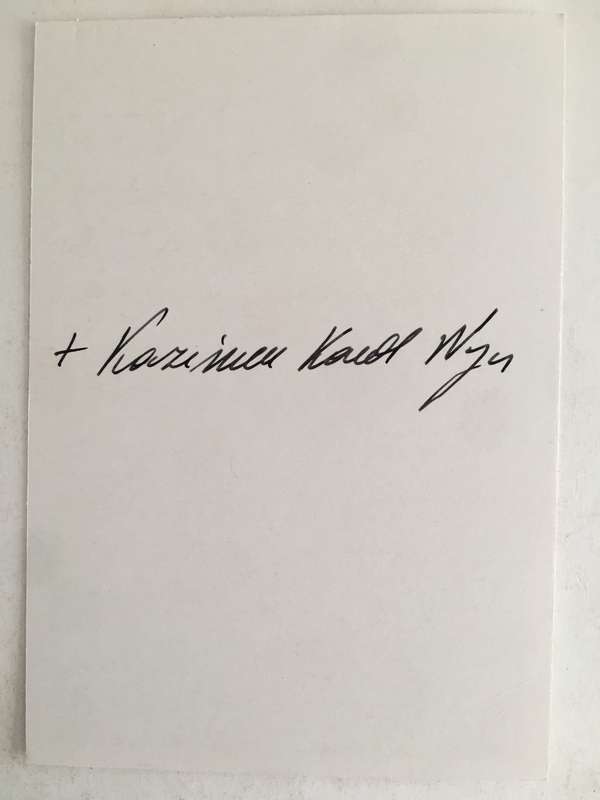 + Kazimierz Kard Nycz